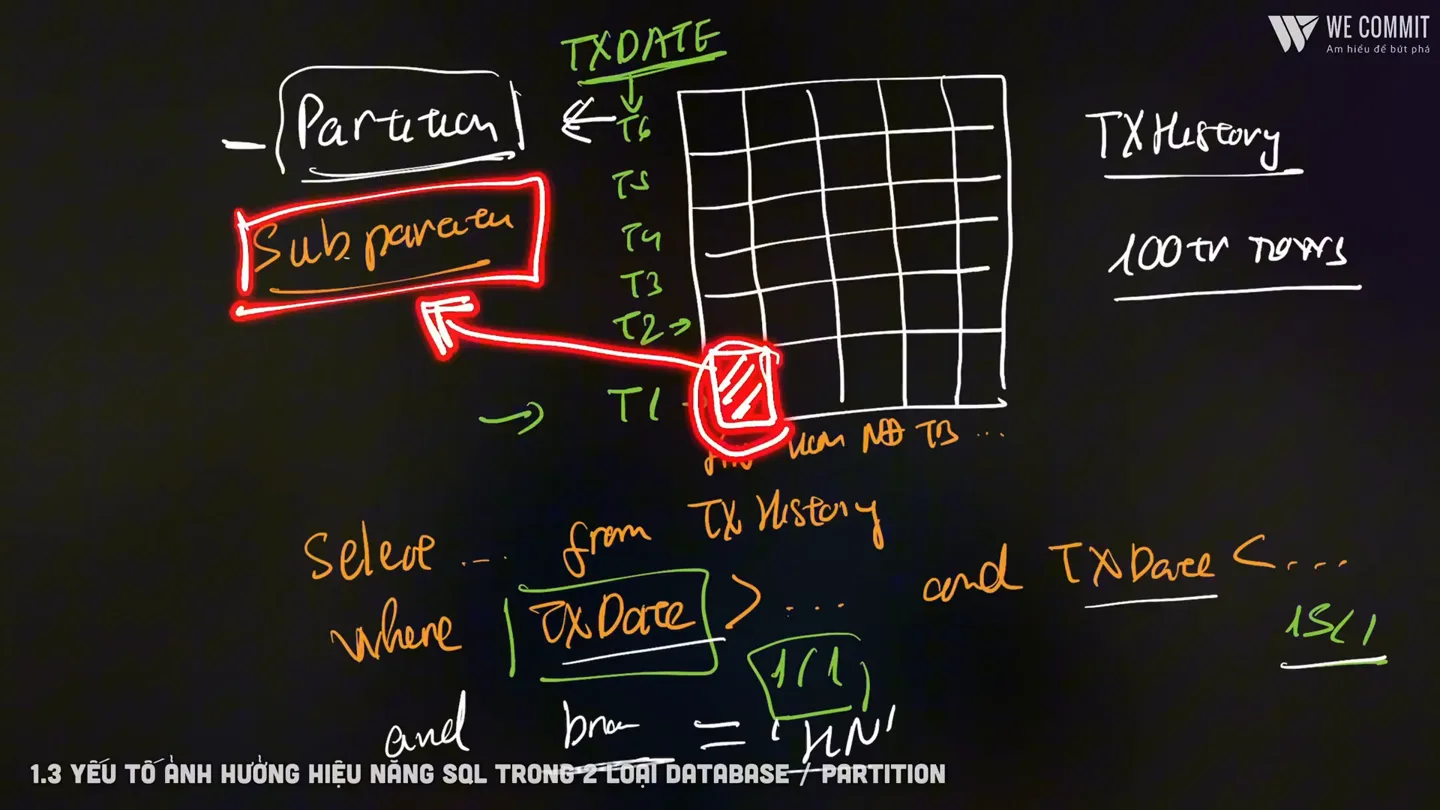 WE COMMIT
Am hiểu để bứt phá
TXDATE
- Partition
← T6
TXHistory
T5
Sub
T4
100tr rows
T3
T2 →
→ T1
HCM NĐ TB ...
Select ... from TXHistory
where TXDate > .... and TXDate < ....
1/1
15/1
and bra = 'HN'
1.3 YẾU TỐ ẢNH HƯỞNG HIỆU NĂNG SQL TRONG 2 LOẠI DATABASE / PARTITION